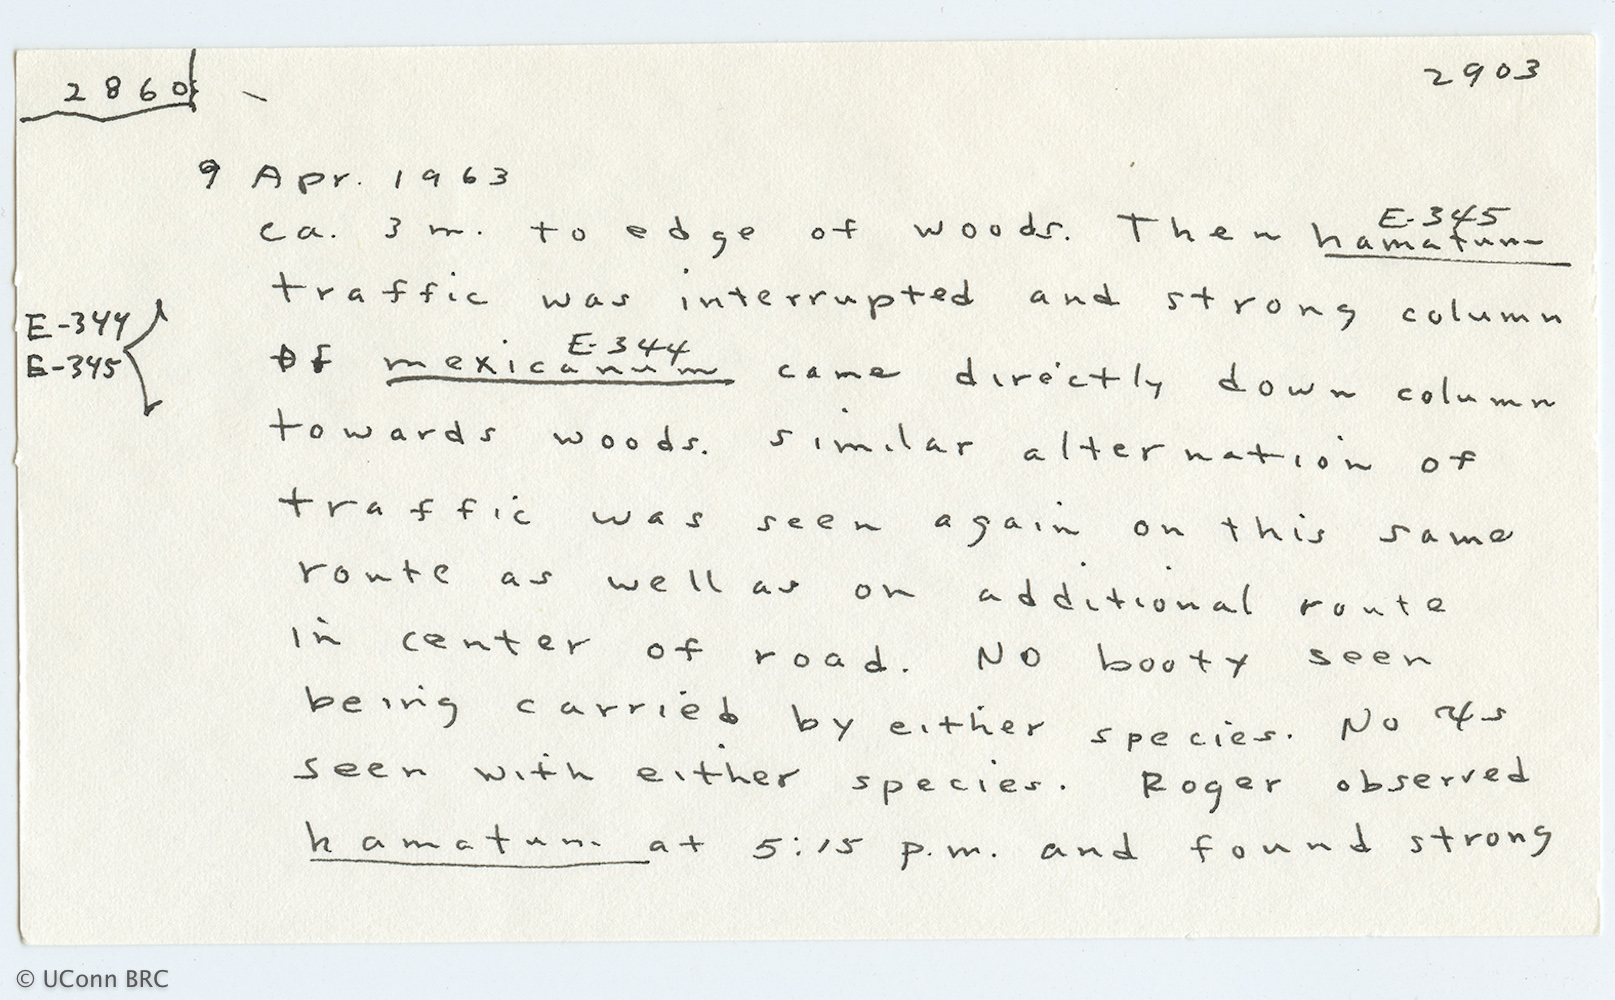 2860 -
2903
9 Apr. 1963
ca. 3 m. to edge of woods. Then hamatum
E-345
traffic was interrupted and strong column
E-344
E-345
of mexicanum came directly down column
E-344
towards woods. Similar alternation of
traffic was seen again on this same
route as well as on additional route
in center of road. No booty seen
being carried by either species. No
seen with either species. Roger observed
hamatum at 5:15 p.m. and found strong
© UConn BRC